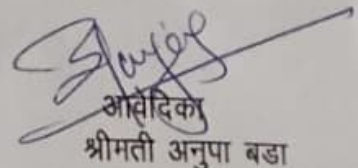 आवेदिका
श्रीमती अनुपा बडा